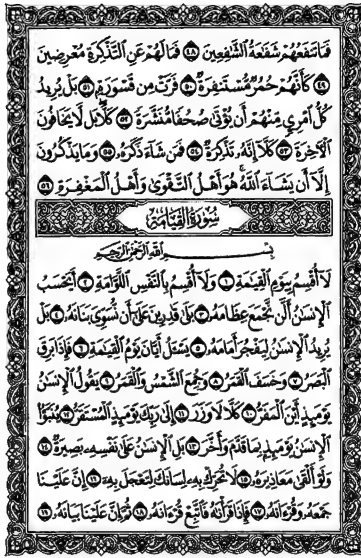 فَمَا تَنفَعُهُمْ شَفَٰعَةُ ٱلشَّٰفِعِينَ ٤٨ فَمَا لَهُمْ عَنِ ٱلتَّذْكِرَةِ مُعْرِضِينَ
٤٩ كَأَنَّهُمْ حُمُرٌ مُّسْتَنفِرَةٌ ٥٠ فَرَّتْ مِن قَسْوَرَةٍ ٥١ بَلْ يُرِيدُ
كُلُّ ٱمْرِئٍ مِّنْهُمْ أَن يُؤْتَىٰ صُحُفًا مُّنَشَّرَةً ٥٢ كَلَّا بَل لَّا يَخَافُونَ
ٱلْأَخِرَةَ ٥٣ كَلَّا إِنَّهُۥ تَذْكِرَةٌ ٥٤ فَمَن شَآءَ ذَكَرَهُۥ ٥٥ وَمَا يَذْكُرُونَ
إِلَّا أَن يَشَآءَ ٱللَّهُ هُوَ أَهْلُ ٱلتَّقْوَىٰ وَأَهْلُ ٱلْمَغْفِرَةِ ٥٦
سُورَةُ القِيَامَةِ
بِسْمِ ٱللَّهِ ٱلرَّحْمَٰنِ ٱلرَّحِيمِ
لَا أُقْسِمُ بِيَوْمِ ٱلْقِيَٰمَةِ ١ وَلَا أُقْسِمُ بِٱلنَّفْسِ ٱللَّوَّامَةِ ٢ أَيَحْسَبُ
ٱلْإِنسَٰنُ أَلَّن نَّجْمَعَ عِظَامَهُۥ ٣ بَلَىٰ قَٰدِرِينَ عَلَىٰ أَن نُّسَوِّيَ بَنَانَهُۥ ٤ بَلْ
يُرِيدُ ٱلْإِنسَٰنُ لِيَفْجُرَ أَمَامَهُۥ ٥ يَسْـَٔلُ أَيَّانَ يَوْمُ ٱلْقِيَٰمَةِ ٦ فَإِذَا بَرِقَ
ٱلْبَصَرُ ٧ وَخَسَفَ ٱلْقَمَرُ ٨ وَجُمِعَ ٱلشَّمْسُ وَٱلْقَمَرُ ٩ يَقُولُ ٱلْإِنسَٰنُ
يَوْمَئِذٍ أَيْنَ ٱلْمَفَرُّ ١٠ كَلَّا لَا وَزَرَ ١١ إِلَىٰ رَبِّكَ يَوْمَئِذٍ ٱلْمُسْتَقَرُّ ١٢ يُنَبَّؤُا
ٱلْإِنسَٰنُ يَوْمَئِذٍ بِمَا قَدَّمَ وَأَخَّرَ ١٣ بَلِ ٱلْإِنسَٰنُ عَلَىٰ نَفْسِهِۦ بَصِيرَةٌ ١٤
وَلَوْ أَلْقَىٰ مَعَاذِيرَهُۥ ١٥ لَا تُحَرِّكْ بِهِۦ لِسَانَكَ لِتَعْجَلَ بِهِۦ ١٦ إِنَّ عَلَيْنَا
جَمْعَهُۥ وَقُرْءَانَهُۥ ١٧ فَإِذَا قَرَأْنَٰهُ فَٱتَّبِعْ قُرْءَانَهُۥ ١٨ ثُمَّ إِنَّ عَلَيْنَا بَيَانَهُۥ ١٩